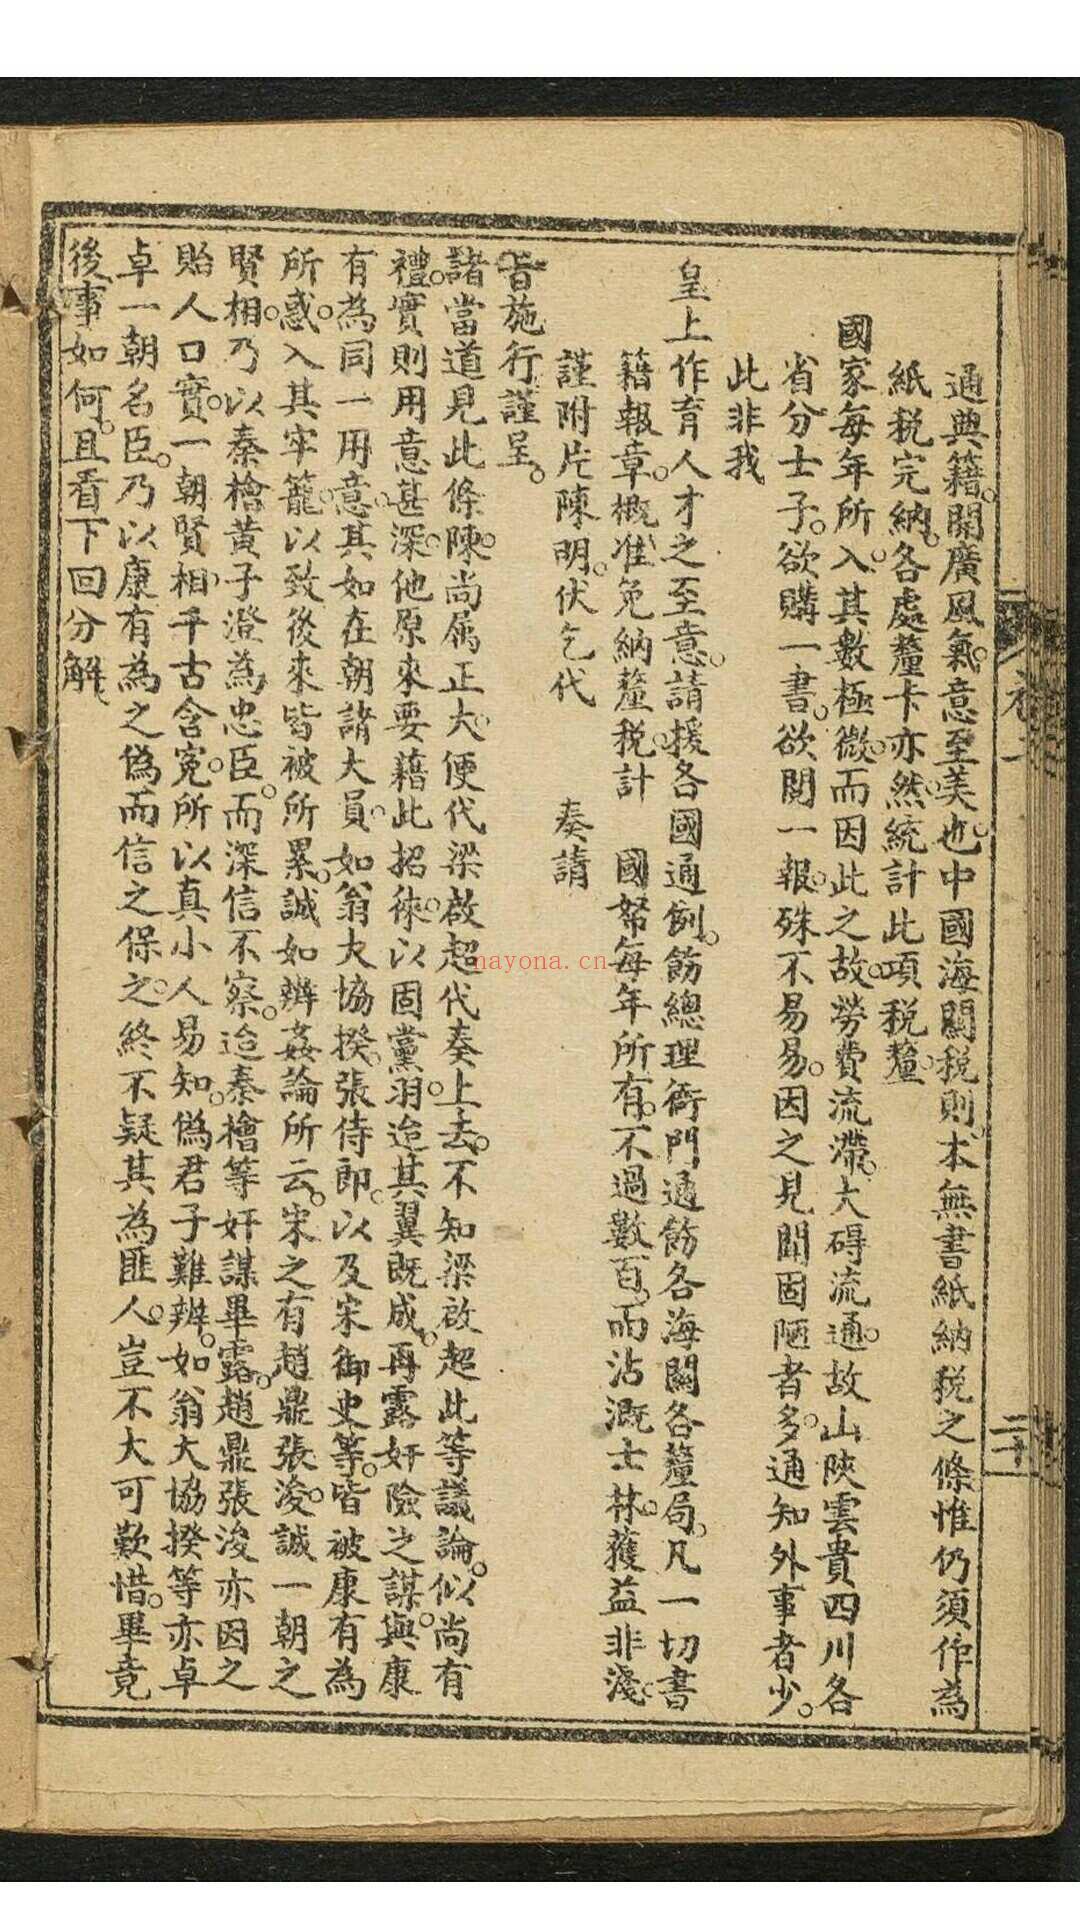 通典籍。開廣風氣。意至美也。中國海關稅則。本無書紙納稅之條惟仍須作為
紙稅完納。各處釐卡亦然。統計此項稅釐。
國家每年所入。其數極微。而因此之故。勞費流滯。大碍流通。故山陝雲貴四川各
省分士子。欲購一書。欲閱一報。殊不易易。因之見聞固陋者多。通知外事者少。
此非我
皇上作育人才之至意。請援各國通例。飭總理衙門通飭各海關各釐局。凡一切書
籍報章。概准免納釐稅。計 國帑每年所有。不過數百。而沾溉士林。獲益非淺。
謹附片陳明。伏乞代 奏請
旨施行謹呈。
諸當道見此條陳。尚属正大。便代梁啟超代奏上去。不知梁啟超此等議論。似尚有
禮。實則用意甚深。他原來要藉此招徠。以固黨羽。迨其翼既成。再露奸險之謀。與康
有為同一用意。其如在朝諸大員。如翁大協揆。張侍郎。以及宋御史等。皆被康有為
所惑。入其牢籠。以致後來皆被所累。誠如辨姦論所云。宋之有趙鼎張浚。誠一朝之
賢相。乃以秦檜黃子澄為忠臣。而深信不察。迨秦檜等奸謀畢露。趙鼎張浚亦因之
貽人口實。一朝賢相。千古含冤。所以真小人易知。偽君子難辨。如翁大協揆等亦卓
卓一朝名臣。乃以康有為之偽而信之保之。終不疑其為匪人。豈不大可歎惜。畢竟
後事如何。且看下回分解、
卷二
二十
nayona.cn